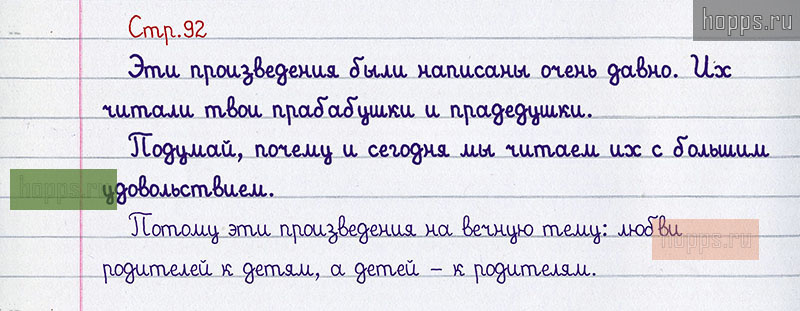 hopps.ru
Стр.92
Эти произведения были написаны очень давно. Их
читали твои прабабушки и прадедушки.
Подумай, почему и сегодня мы читаем их с большим
hopps.ru
удовольствием.
Потому эти произведения на вечную тему: любви
hopps.ru
родителей к детям, а детей – к родителям.